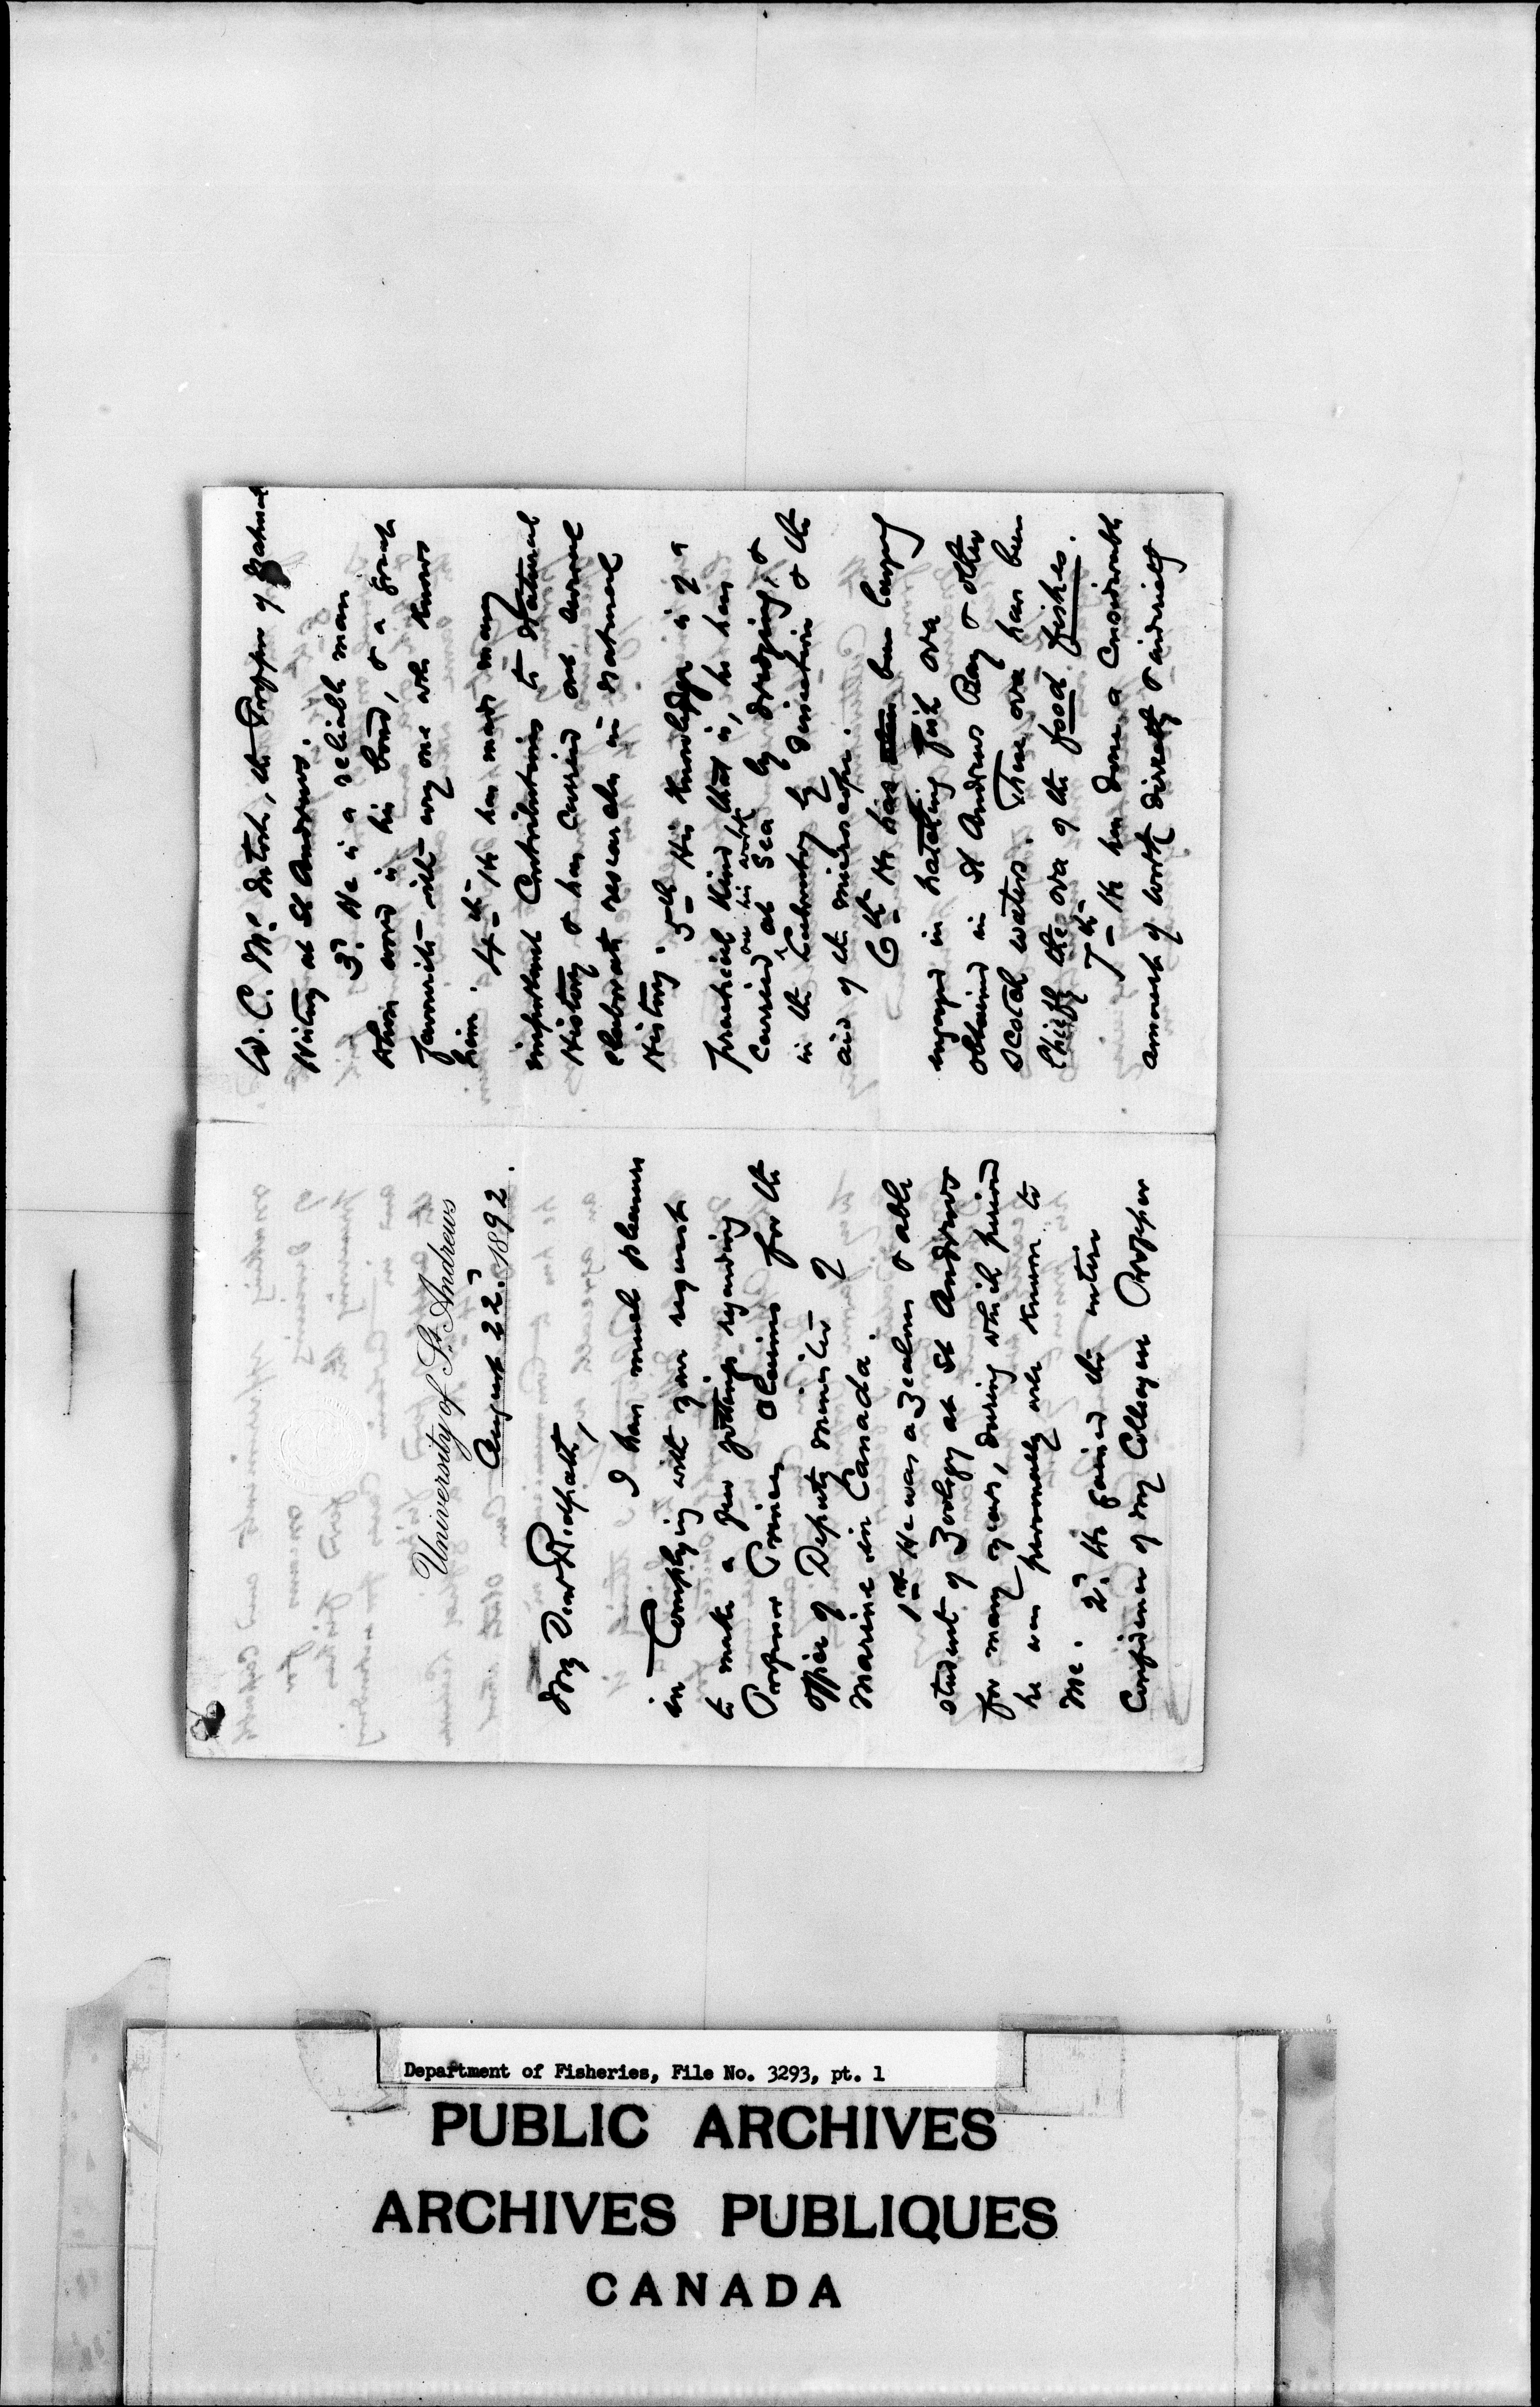 University of St. Andrews
August 22d. 1892.
My Dear Redpath,
I have much pleasure
in Complying with your request
to make a few jottings regarding
Professor Prince's Claims for the
office of Deputy Minister of
Marine in Canada.
1st He was a zealous & able
student of Zoology at St Andrews
for many years, during which period
he was personally well known to
me. 2d. He gained the entire
Confidence of my Colleague Professor
W. C. McIntosh, the Professor of Natural
History at St Andrews.
3d. He is a reliable man
whose word is his bond, & a great
favourite with every one who knows
him. 4th He has made many
important Contributions to Natural
History & has Carried out several
elaborate researches in Natural
History. 5th His Knowledge is of a
practical Kind that is, he has
Carried on his work at Sea by dredging, &
in the Laboratory by dissection & the
aid of the microscope.
6th He has been largely
engaged in hatching Fish ova
obtained in St Andrews Bay & other
Scotch waters. These ova have been
Chiefly the ova of the food fishes.
7th He has done a Considerable
amount of work directly & indirectly
Department of Fisheries, File No. 3293, pt. 1
PUBLIC ARCHIVES
ARCHIVES PUBLIQUES
CANADA